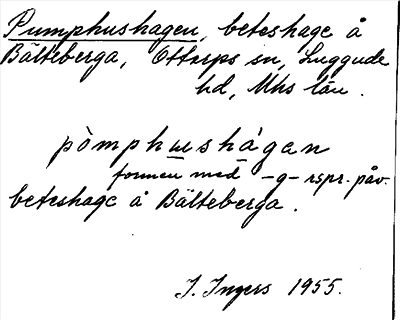 Pumphushagen, beteshage å
Bälteberga, Ottarps sn, Luggude
hd, Mhs län.
pòmphu̲shágan
formen med -g- rspr. påv.
beteshage å Bälteberga.
I. Ingers 1955.